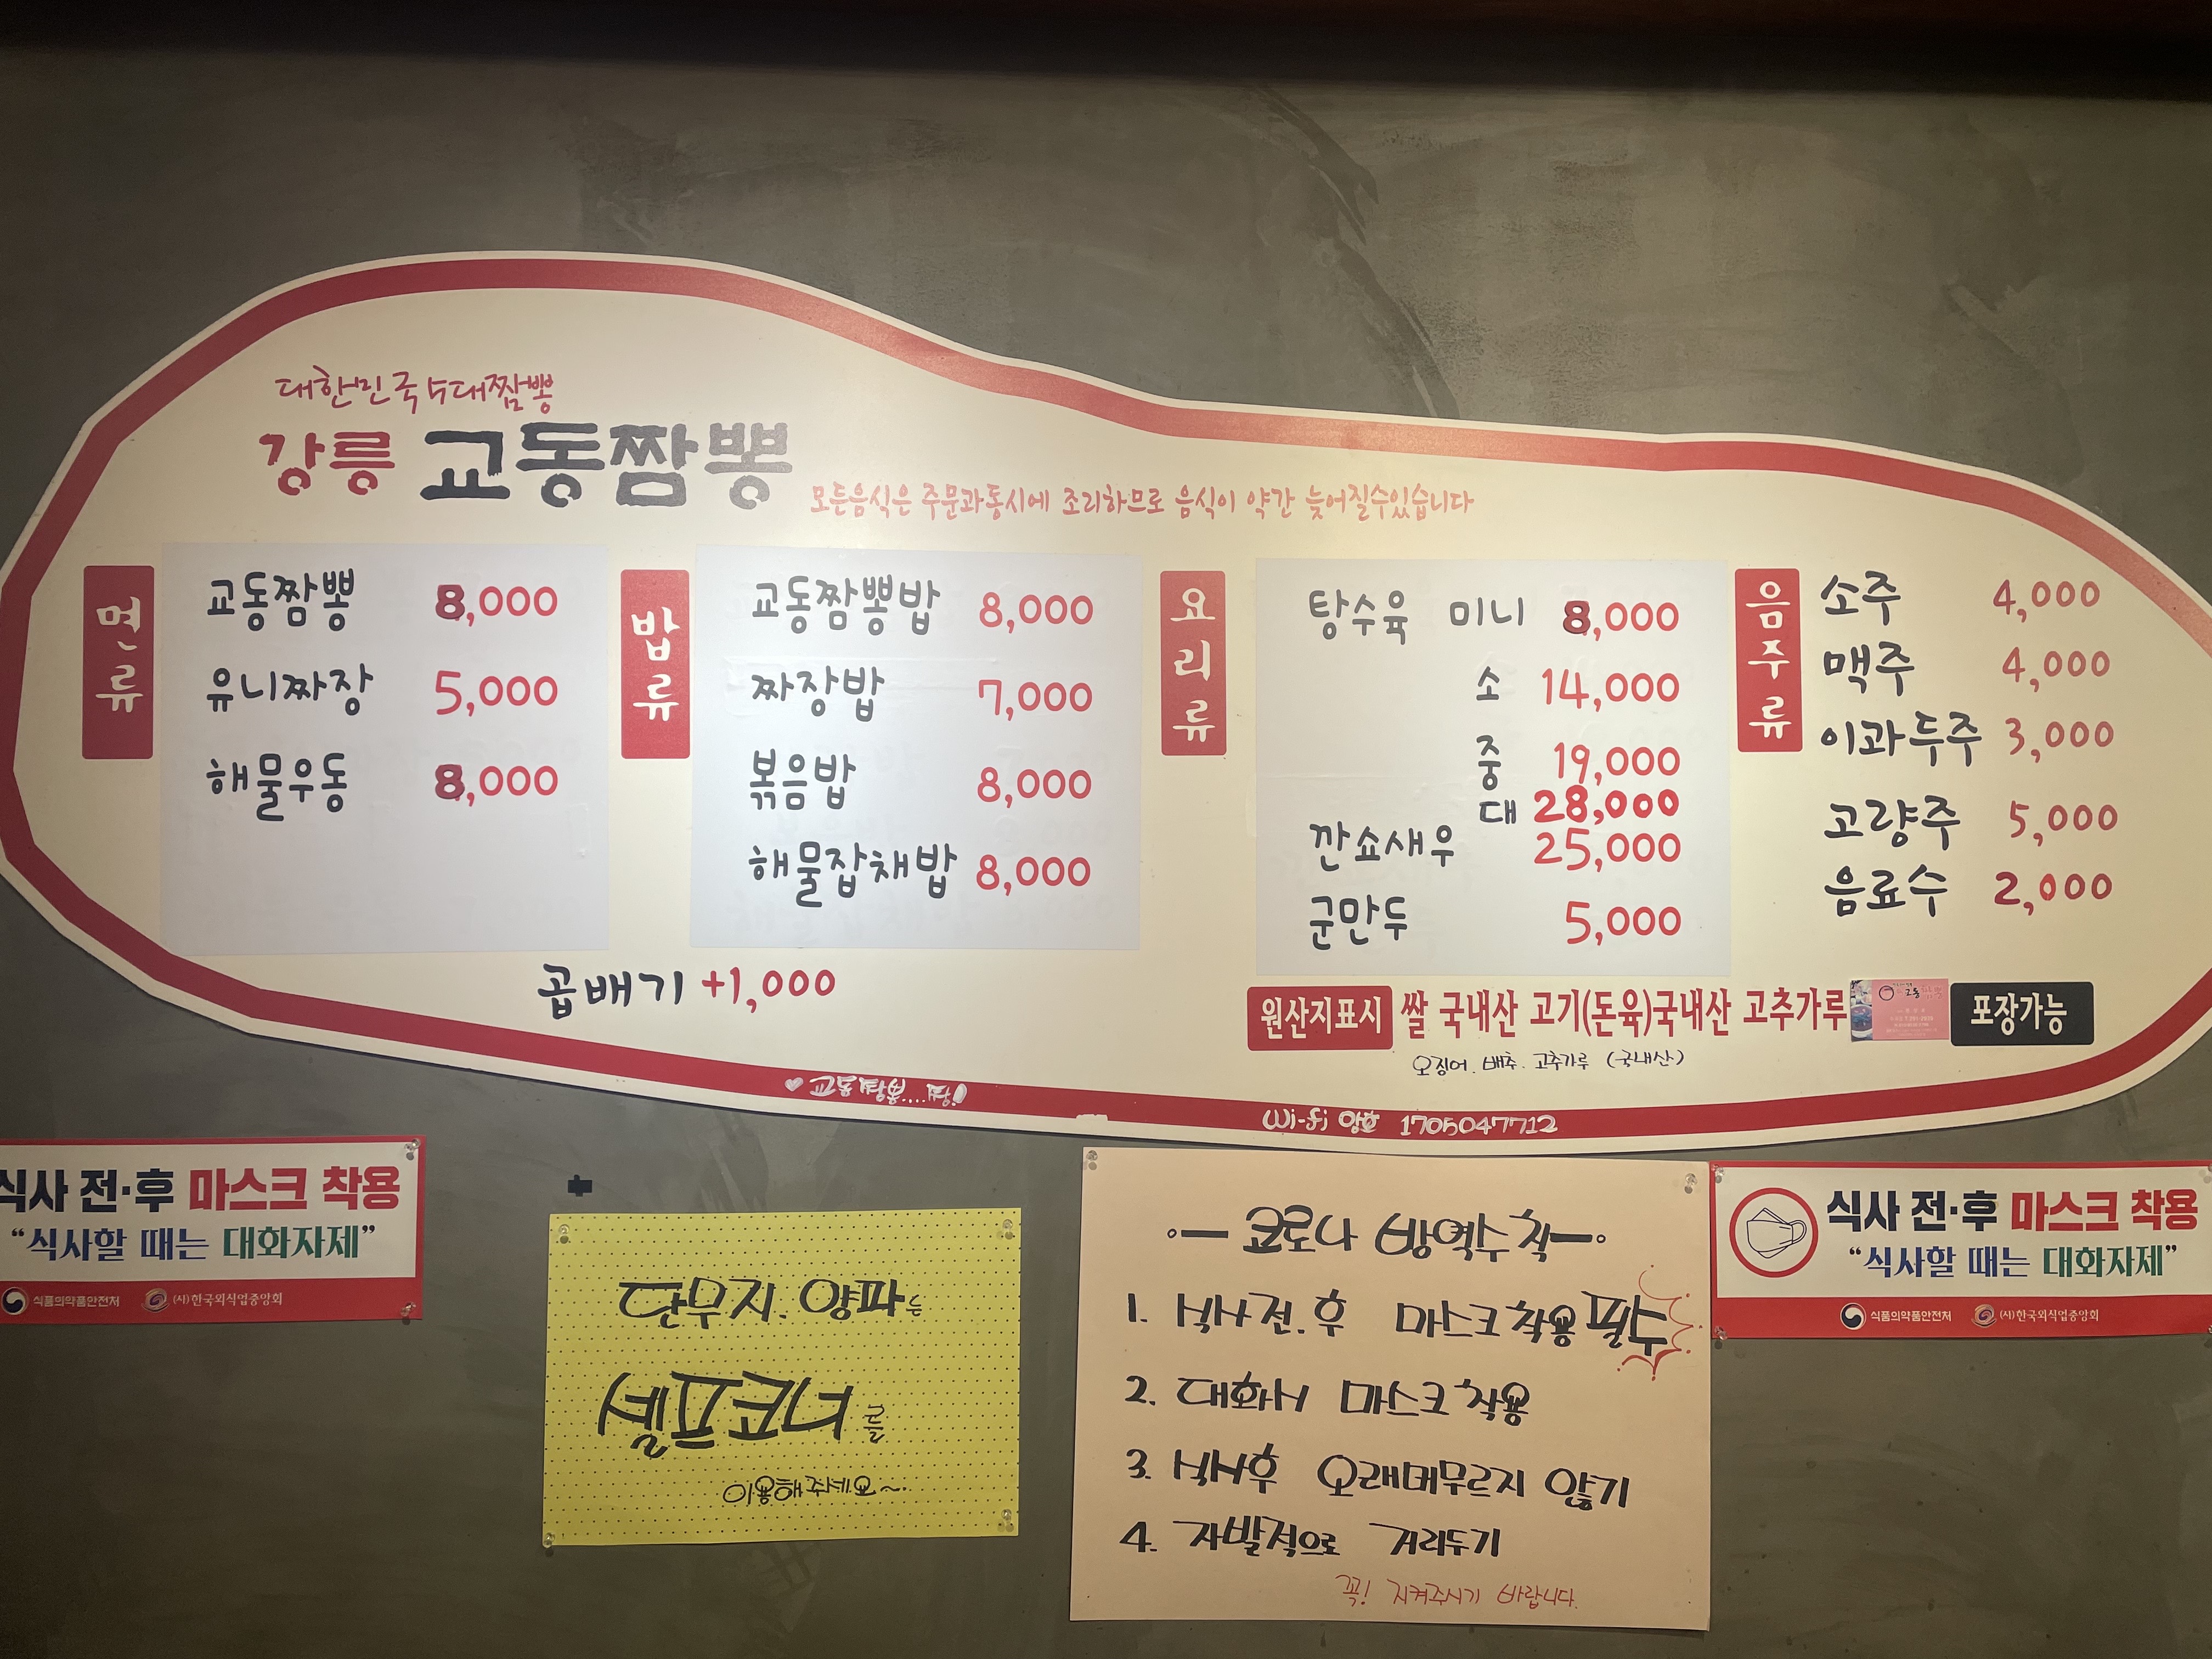 대한민국 5대짬뽕
강릉 교동짬뽕
모든음식은 주문과동시에 조리하므로 음식이 약간 늦어질수있습니다
면류
교동짬뽕 8,000
유니짜장 5,000
해물우동 8,000
밥류
교동짬뽕밥 8,000
짜장밥 7,000
볶음밥 8,000
해물잡채밥 8,000
곱배기 +1,000
요리류
탕수육 미니 8,000
소 14,000
중 19,000
대 28,000
깐쇼새우 25,000
군만두 5,000
음주류
소주 4,000
맥주 4,000
이과두주 3,000
고량주 5,000
음료수 2,000
원산지표시 쌀 국내산 고기(돈육)국내산 고추가루
포장가능
오징어. 배추. 고추가루 (국내산)
교동짬뽕....
Wi-fi 암호 1705047712
식사 전·후 마스크 착용
“식사할 때는 대화자제”
식품의약품안전처 (사)한국외식업중앙회
단무지. 양파는
셀프코너를
이용해주세요~
코로나 방역수칙
1. 식사전.후 마스크착용 필수
2. 대화시 마스크 착용
3. 식사후 오래머무르지 않기
4. 자발적으로 거리두기
꼭! 지켜주시기 바랍니다.
식사 전·후 마스크 착용
“식사할 때는 대화자제”
식품의약품안전처 (사)한국외식업중앙회